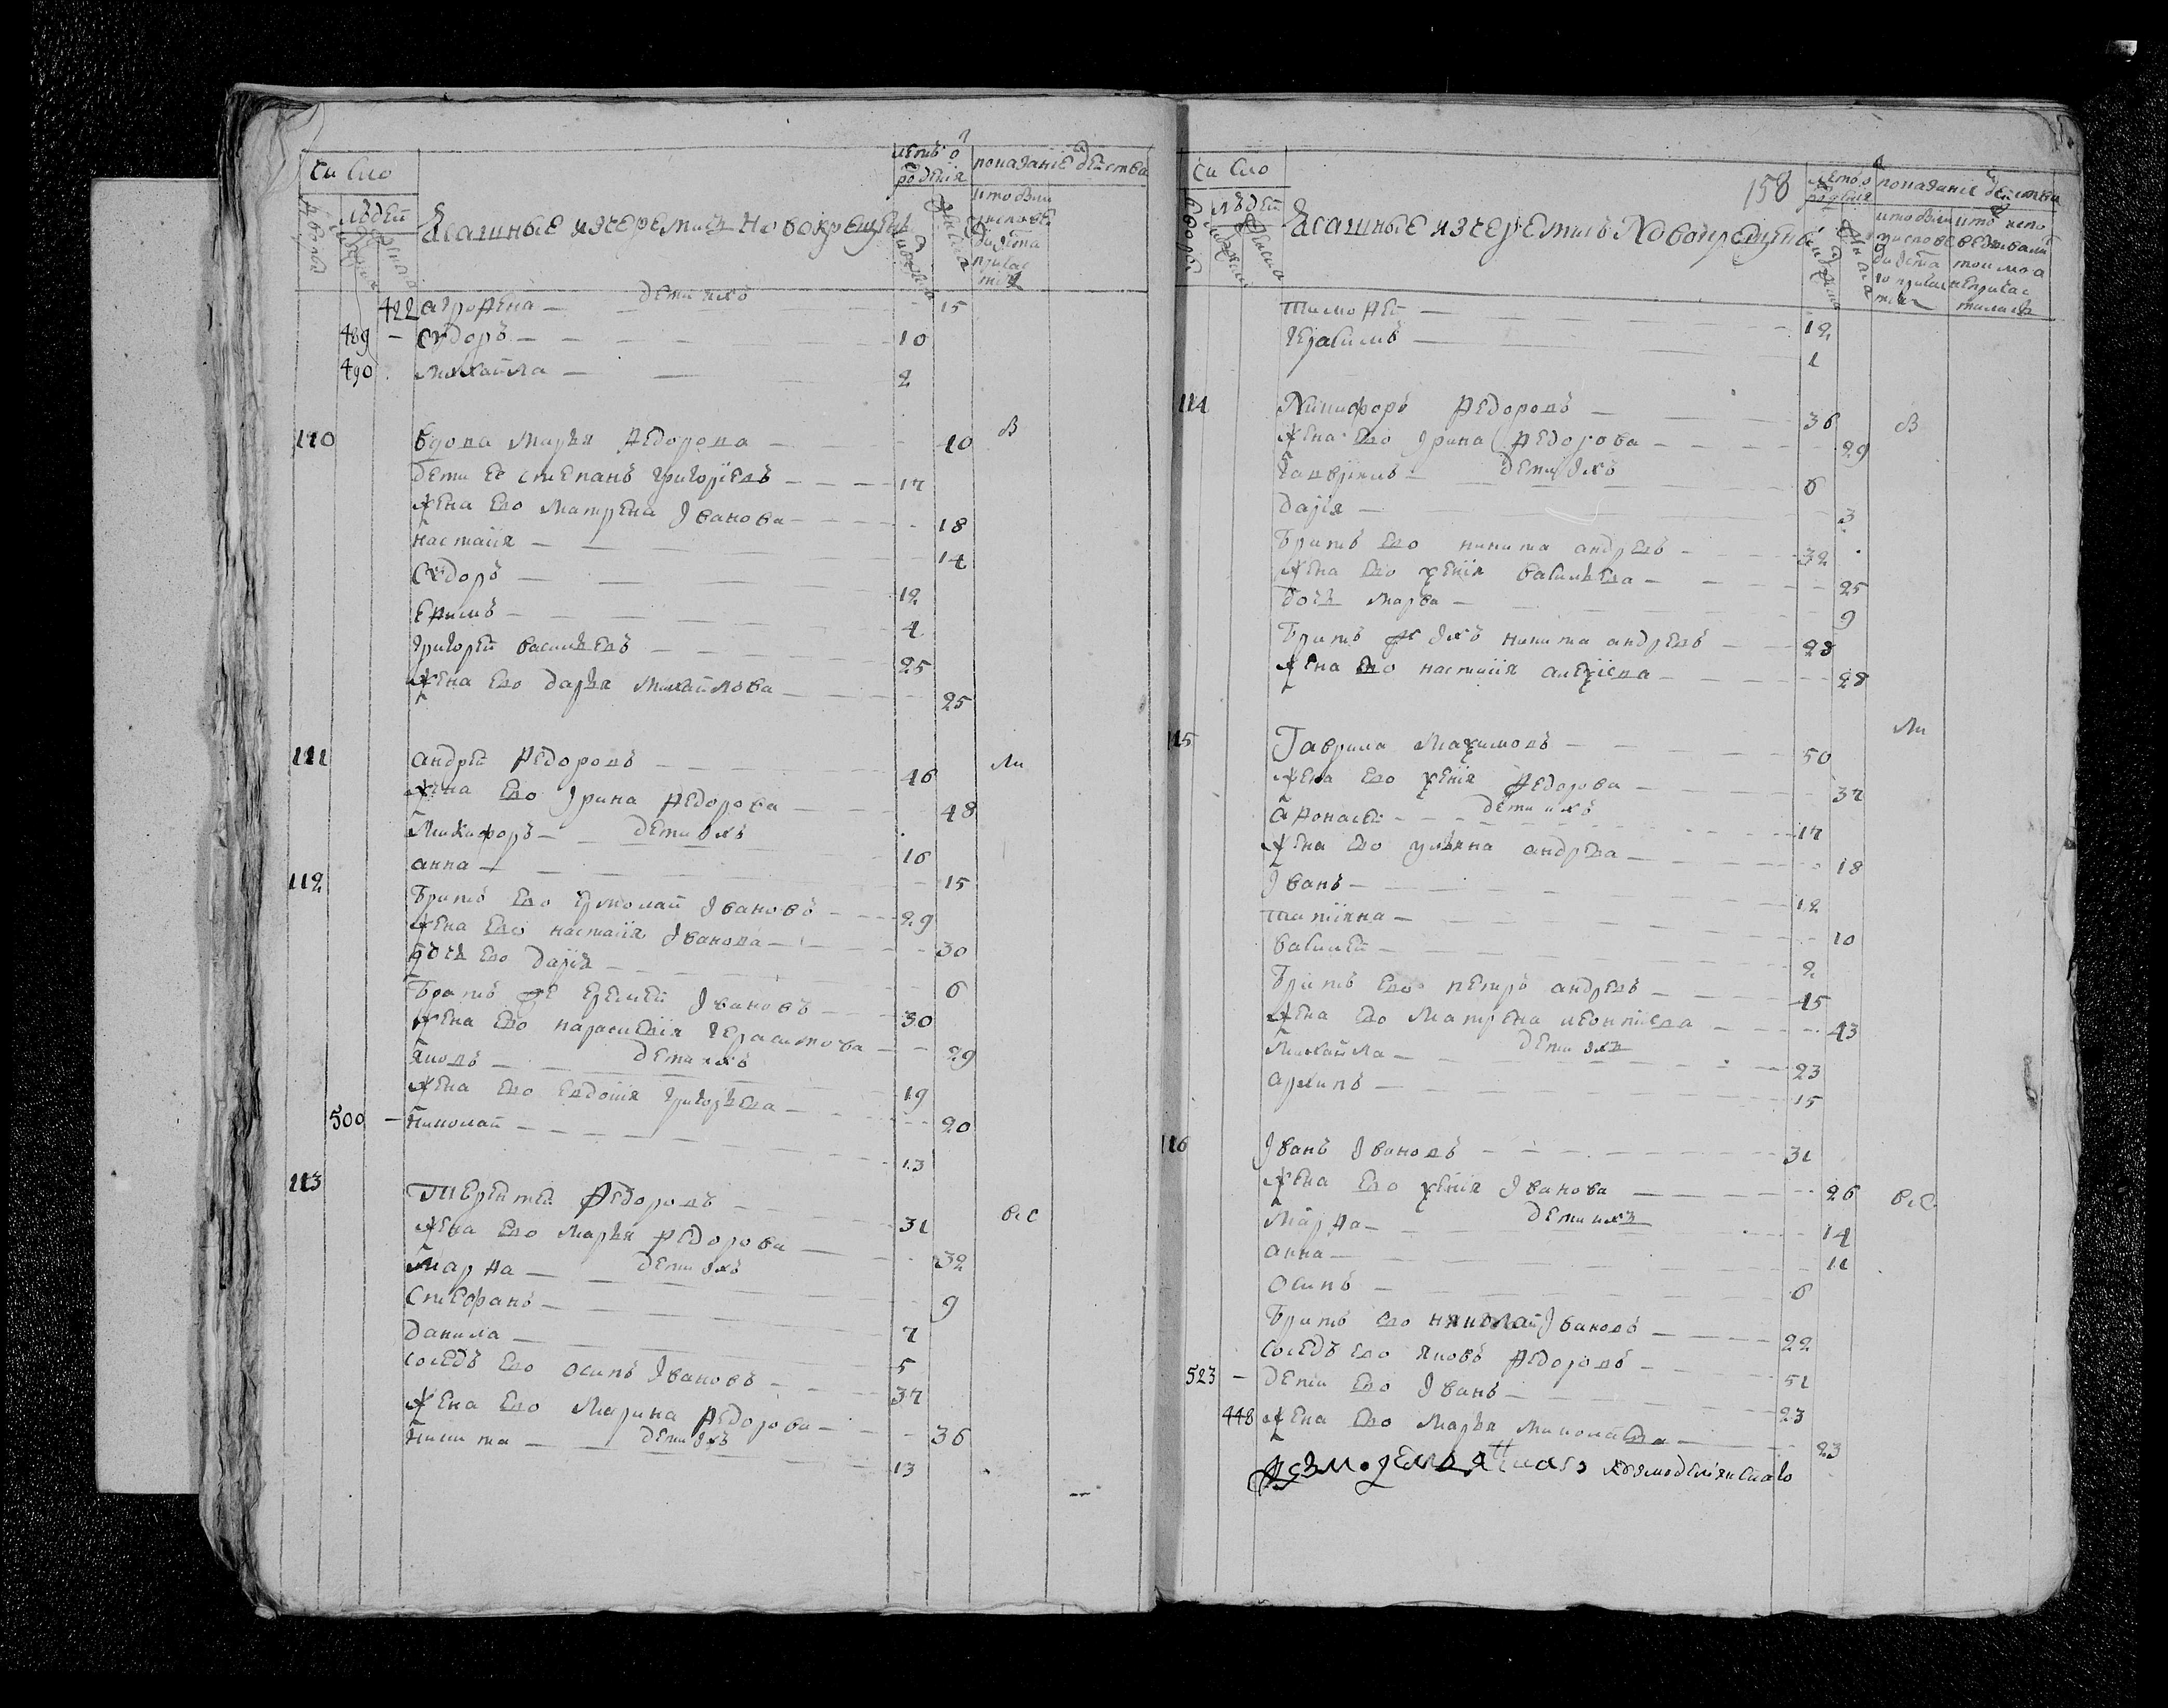 Число
людей
Ясашные изчеремисъ Новокрещены
летъ о рожденiя
показанiе действа
422 агрофена — дети ихъ 15
489 — Сидоръ — 10
490 михайла — 2
110 вдова Марья Федорова — 40 В
Дети ее степанъ григорiевъ — 17
Жена ево Матрена Иванова — 18
настасiя — 14
Сидоръ — 12
Ефимъ — 4
григорей васильевъ — 25
Жена ево дарья михайлова — 25
111 андрей Федоровъ — 46
Жена ево Ирина Федорова — 48
Никифоръ — дети ихъ 16
анна — 15
112 Братъ ево ермолай Ивановъ — 29
Жена ево настасiя Иванова — 30
дочь ево дарiя — 6
Братъ же еремей Ивановъ — 30
Жена ево парасковiя герасимова — 29
яковъ — дети ихъ 19
Жена ево евдокiя григорьева — 20
500 — николай — 13
113 Терентей Федоровъ — 31
Жена ево марья Федорова — 32
Марфа — дети ихъ 9
Стефанъ — 7
данила — 5
соседъ ево осипъ Ивановъ — 37
Жена ево Марина Федорова — 36
никита — дети ихъ 13
158
Число
людей
Ясашные изчеремисъ Новокрещены
летъ о рожденiя
показанiе действа
тимофей — 12
герасимъ — 1
114 Никифоръ Федоровъ — 36 В
Жена ево Ирина Федорова — 29
гаврилъ — дети ихъ 6
дарiя — 3
Братъ ево никита андревъ — 32
Жена ево ксенiя васильева — 25
дочь марфа — 9
Братъ ж ихъ никита андревъ — 28
Жена ево настасiя алексiева — 28
115 Гаврила Максимовъ — 50
Жена ево ксенiя Федорова — 37
афонасей — дети ихъ 17
Жена ево ульяна андрева — 18
Иванъ — 12
татiяна — 10
василей — 2
Братъ ево петръ андревъ — 45
Жена ево Матрена леонтiева — 43
Михайла — дети ихъ 23
архипъ — 15
116 Иванъ Ивановъ — 31
Жена ево ксенiя Иванова — 26
марфа — дети ихъ 14
анна — 11
осипъ — 6
Братъ ево николай Ивановъ — 22
соседъ ево яковъ Федоровъ — 51
523 — дети ево Иванъ — 23
448 Жена ево марья николаева — 23
козмодемьянскаго